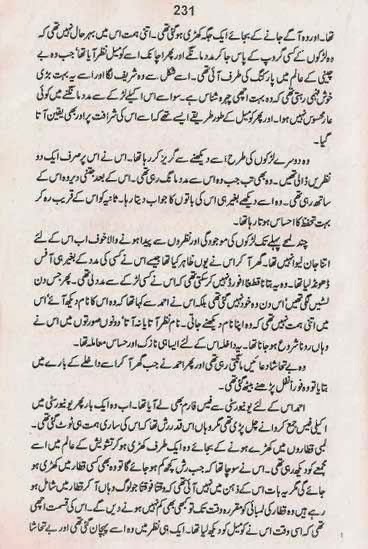 231
تھا۔ اور وہ آگے جانے کے بجائے ایک جگہ کھڑی ہو گئی تھی۔ اتنی ہمت اس میں بہرحال نہیں تھی کہ
وہ لڑکوں کے کسی گروپ کے پاس جا کر مدد مانگے اور پھر اچانک اسے کومیل نظر آیا تھا جب وہ بے
چینی کے عالم میں پارکنگ کی طرف آئی تھی۔ اسے شکل سے وہ شریف لگا اور اسے یہ بہت بڑی
خوش فہمی رہتی تھی کہ وہ بہت اچھی چہرہ شناس ہے۔ سو اسے اس اکیلے لڑکے سے مدد مانگنے میں کوئی
عار محسوس نہیں ہوا۔ اور پھر کومیل کے طور طریقے ایسے تھے کہ اسے اس کی شرافت پر اور بھی یقین آتا
گیا۔
وہ دوسرے لڑکوں کی طرح اسے دیکھنے سے گریز کر رہا تھا۔ اس نے اس پر صرف ایک دو
نظریں ڈالی تھیں۔ وہ بھی تب جب وہ اس سے مدد مانگ رہی تھی۔ اس کے بعد جتنی دیر وہ اس کے
ساتھ رہی تھی۔ وہ اسے دیکھے بغیر ہی اس کی باتوں کا جواب دیتا رہا۔ ثانیہ کو اس کے قریب رہ کر
بہت تحفظ کا احساس ہوتا رہا تھا۔
چند لمحے پہلے تک لڑکوں کی موجودگی اور نظروں سے پیدا ہونے والا خوف اب اس کے لئے
اتنا جان لیوا نہیں تھا۔ گھر آ کر اس نے یوں ظاہر کیا تھا جیسے اس نے کسی کی مدد کے بغیر ہی آفس
ڈھونڈ لیا تھا۔ وہ یہ بتانا قطعاً افورڈ نہیں کر سکتی تھی کہ اس نے کسی لڑکے سے مدد لی تھی۔ پھر جس دن
لسٹیں لگی تھیں اس دن وہ خود نہیں گئی تھی بلکہ اس نے احمد سے کہا تھا کہ وہ اس کا نام دیکھ آئے اس
میں اتنی ہمت نہیں تھی کہ وہ اپنا نام دیکھنے جاتی۔ نام نظر آتا یا نہ آتا دونوں صورتوں میں اس نے
وہاں رونا شروع ہو جانا تھا۔ یہ داخلہ اس کے لئے ایسا ہی نازک اور حساس معاملہ تھا۔
وہ بے تحاشا دعائیں مانگتی رہی تھی اور پھر احمد نے جب گھر آ کر اسے داخلے کے بارے میں
بتایا تو وہ فوراً نفل پڑھنے بیٹھ گئی تھی۔
احمد اس کے لئے یونیورسٹی سے فیس فارم بھی لے آیا تھا۔ اب وہ ایک بار پھر یونیورسٹی میں
اکیلی فیس جمع کروانے چل پڑی تھی مگر وہاں اس قدر رش تھا کہ اس کی ساری ہمت ہی ٹوٹ گئی تھی۔
لمبی قطاروں میں کھڑے ہونے کے بجائے وہ ایک طرف کھڑی ہو کر تشویش کے عالم میں اسے
مجمعے کو دیکھ رہی تھی۔ اس نے سوچا تھا کہ جب رش کچھ کم ہو جائے گا تو وہ بھی کسی قطار میں شامل ہو
جائے گی مگر یہ بات اس کے ذہن میں نہیں آئی تھی کہ وقتاً فوقتاً جو لوگ وہاں آ کر قطار میں شامل ہو
رہے ہیں وہ قطار کی لمبائی مقررہ وقت تک تو کبھی بھی کم نہیں ہونے دیں گے۔ اس کی قسمت اچھی
تھی کہ اسی وقت اس نے کومیل کو دیکھ لیا تھا۔ ایک ہی نظر میں وہ اسے پہچان گئی تھی اور بے تحاشا